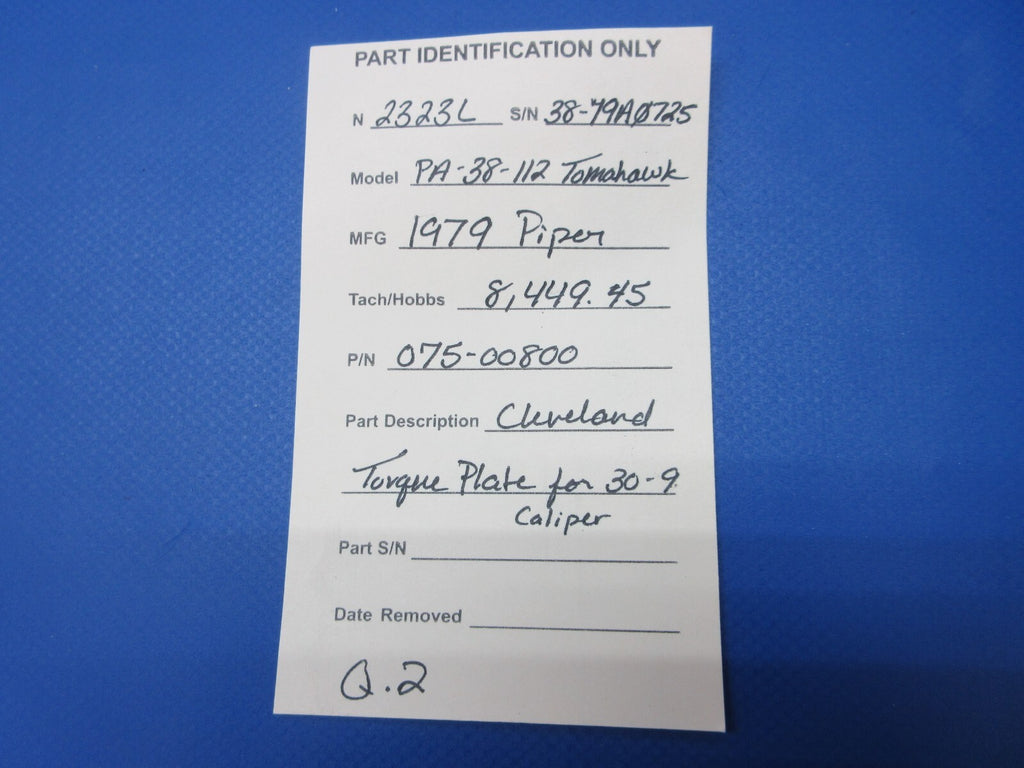 PART IDENTIFICATION ONLY
N 2323L S/N 38-79A0725
Model PA-38-112 Tomahawk
MFG 1979 Piper
Tach/Hobbs 8,449.45
P/N 075-00800
Part Description Cleveland
Torque Plate for 30-9
Caliper
Part S/N
Date Removed
Q.2